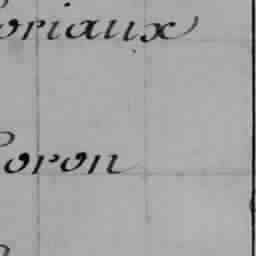 oriaux
oron